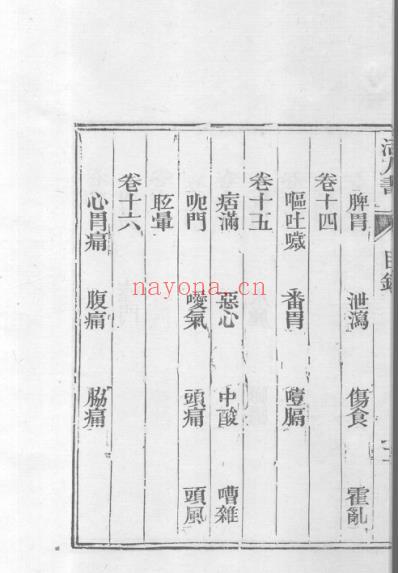 活人書 目錄
脾胃 泄瀉 傷食 霍亂
卷十四
嘔吐噦 番胃 噎膈
卷十五
痞滿 惡心 中酸 嘈雜
呃門 噯氣 頭痛 頭風
眩暈
卷十六
心胃痛 腹痛 脇痛
nayona.cn